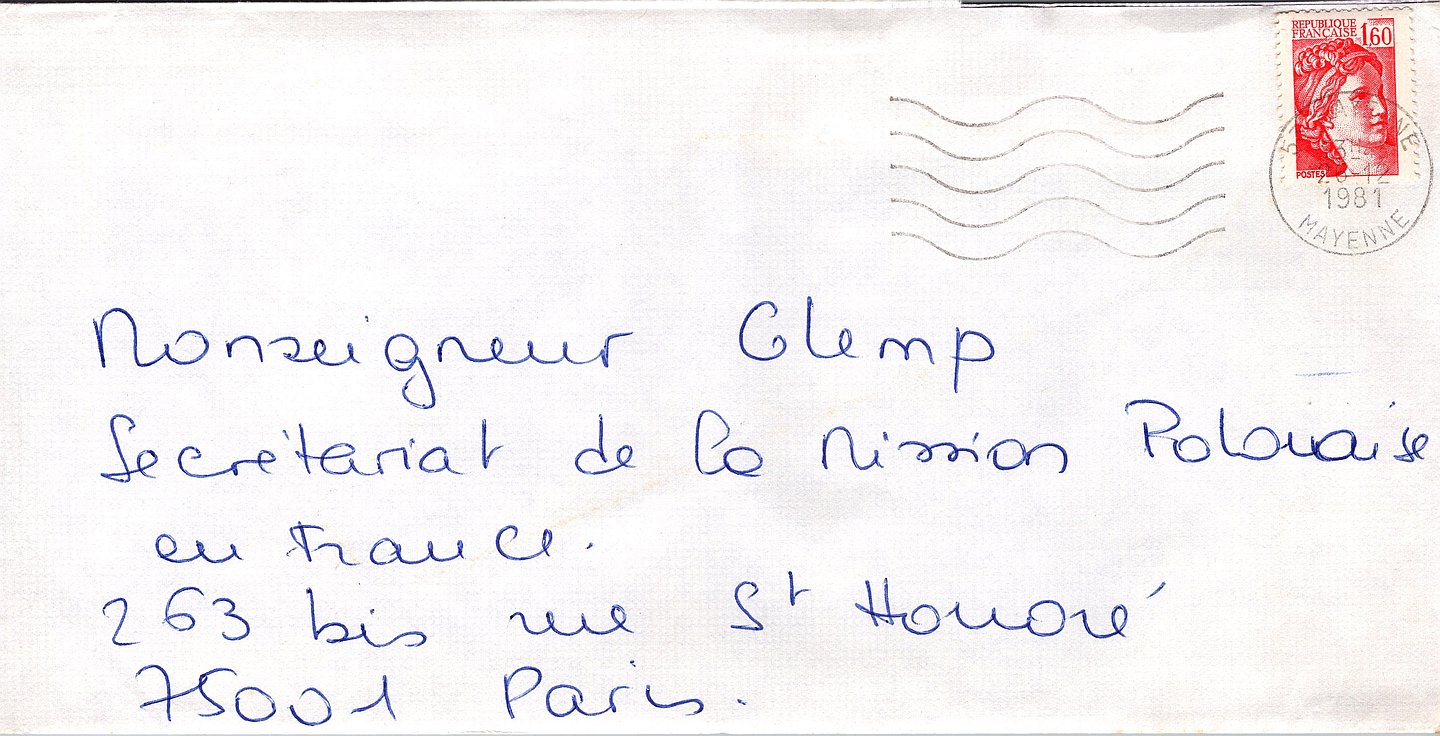 REPUBLIQUE
FRANÇAISE 1,60
POSTES
12
1981
MAYENNE
Monseigneur Glemp
Secrétariat de la Mission Polonaise
en France.
263 bis rue St Honoré
75001 Paris.